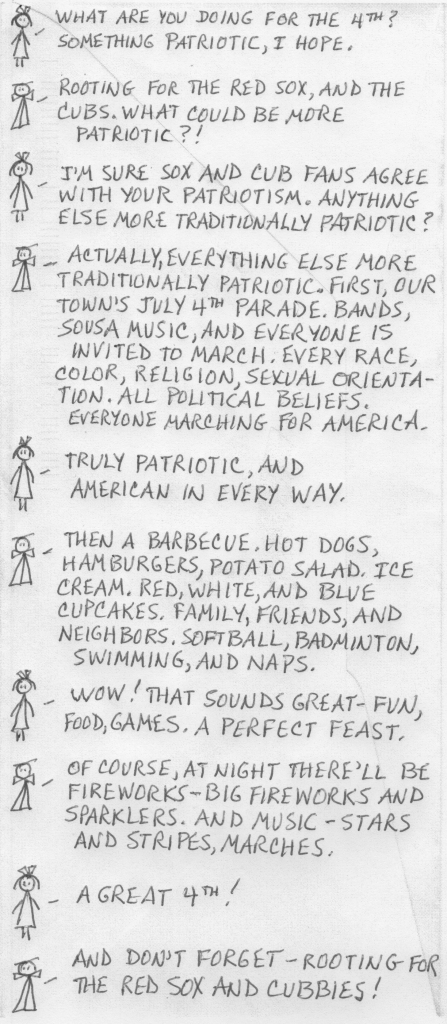 WHAT ARE YOU DOING FOR THE 4TH?
SOMETHING PATRIOTIC, I HOPE.
ROOTING FOR THE RED SOX, AND THE
CUBS. WHAT COULD BE MORE
PATRIOTIC?!
I'M SURE SOX AND CUB FANS AGREE
WITH YOUR PATRIOTISM. ANYTHING
ELSE MORE TRADITIONALLY PATRIOTIC?
ACTUALLY, EVERYTHING ELSE MORE
TRADITIONALLY PATRIOTIC. FIRST, OUR
TOWN'S JULY 4TH PARADE. BANDS,
SOUSA MUSIC, AND EVERYONE IS
INVITED TO MARCH. EVERY RACE,
COLOR, RELIGION, SEXUAL ORIENTA-
TION. ALL POLITICAL BELIEFS.
EVERYONE MARCHING FOR AMERICA.
TRULY PATRIOTIC, AND
AMERICAN IN EVERY WAY.
THEN A BARBECUE. HOT DOGS,
HAMBURGERS, POTATO SALAD. ICE
CREAM. RED, WHITE, AND BLUE
CUPCAKES. FAMILY, FRIENDS, AND
NEIGHBORS. SOFTBALL, BADMINTON,
SWIMMING, AND NAPS.
WOW! THAT SOUNDS GREAT - FUN,
FOOD, GAMES. A PERFECT FEAST.
OF COURSE, AT NIGHT THERE'LL BE
FIREWORKS - BIG FIREWORKS AND
SPARKLERS. AND MUSIC - STARS
AND STRIPES, MARCHES.
A GREAT 4TH!
AND DON'T FORGET - ROOTING FOR
THE RED SOX AND CUBBIES!